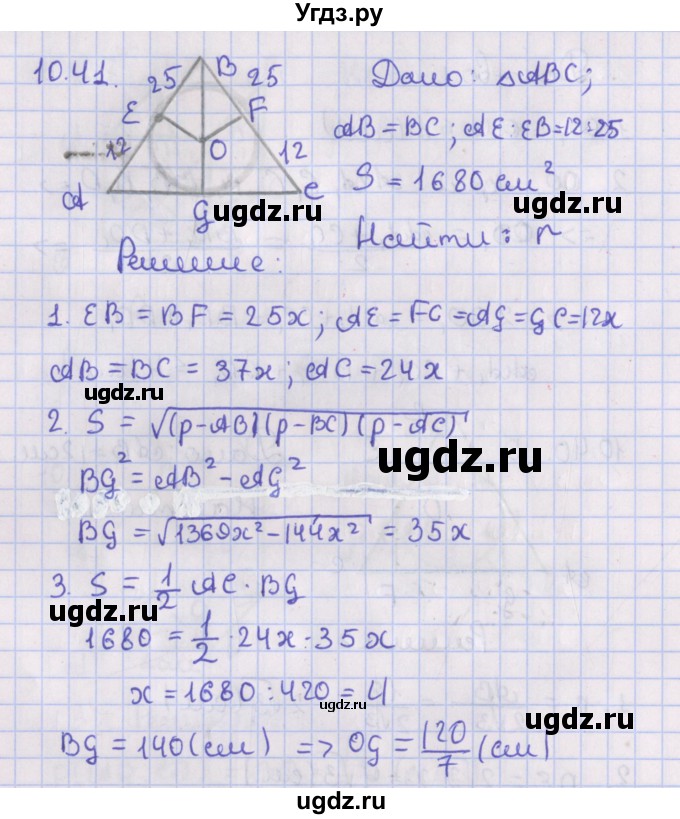 Угдз.ру
10.41.
25 B 25
E F
12 O 12
A G C
Дано: △ABC;
AB = BC; AE:EB=12:25
S = 1680 см²
ugdz.ru
Найти: r
ugdz.ru
Решение:
1. EB = BF = 25x; AE = FC = AG = GC = 12x
AB = BC = 37x; AC = 24x
ugdz.ru
2. S = √(p-AB)(p-BC)(p-AC)
ugdz.ru
BG² = AB² - AG²
BG = √1369x² - 144x² = 35x
3. S = 1/2 AC · BG
ugdz.ru
1680 = 1/2 · 24x · 35x
ugdz.ru
x = 1680 : 420 = 4
ugdz.ru
BG = 140 (см) => OG = 120/7 (см)
ugdz.ru
ugdz.ru